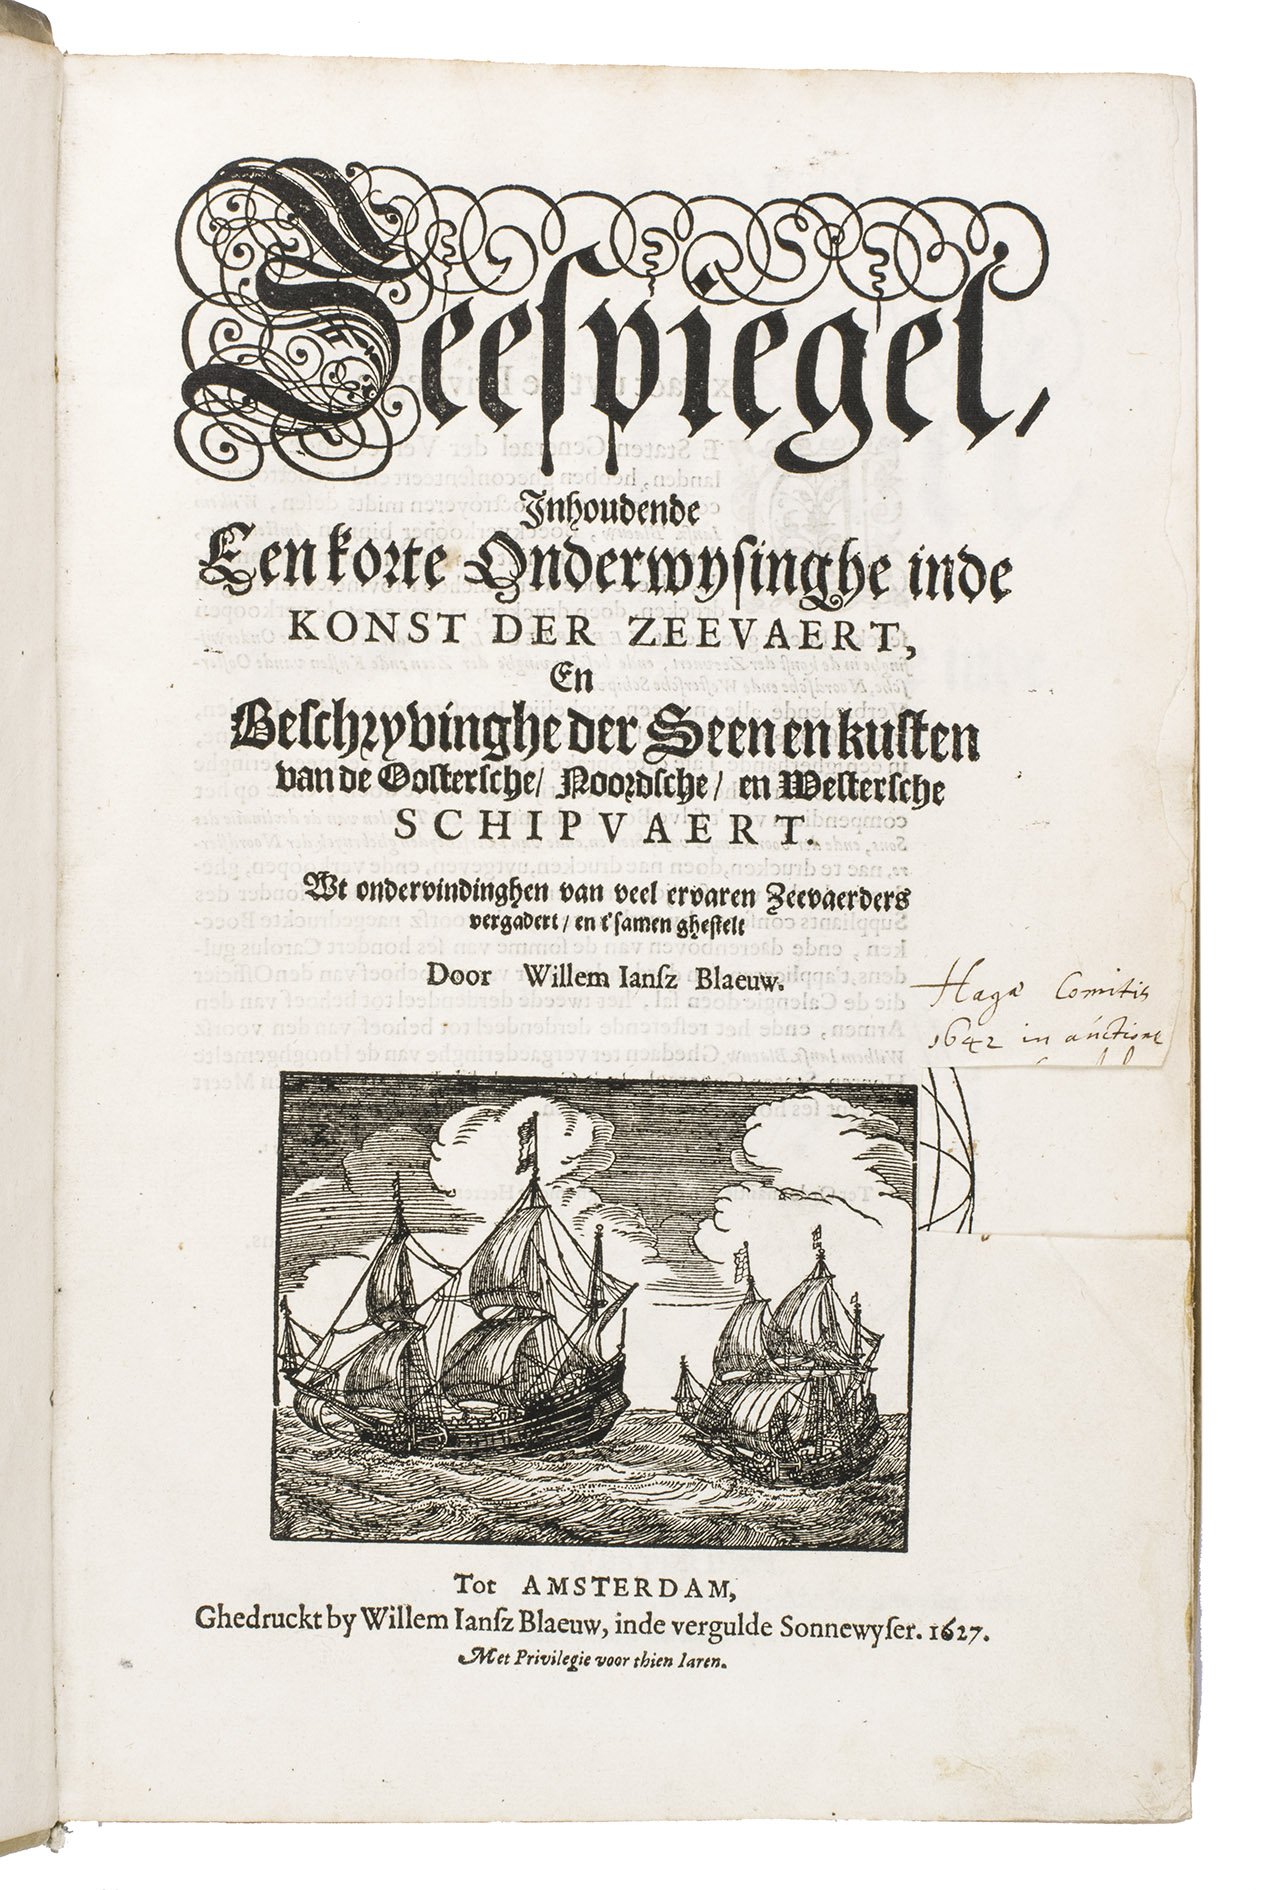 Zeespiegel,
Inhoudende
Een korte Onderwysinghe inde
KONST DER ZEEVAERT,
En
Beschryvinghe der Seen en kusten
van de Oostersche/ Noordsche/ en Westersche
SCHIPVAERT.
Wt ondervindinghen van veel ervaren Zeevaerders
vergadert/ en t'samen ghestelt
Door Willem Iansz Blaeuw.
Hagæ Comitis
1642 in auctione
Tot AMSTERDAM,
Ghedruckt by Willem Iansz Blaeuw, inde vergulde Sonnewyser. 1627.
Met Privilegie voor thien Iaren.